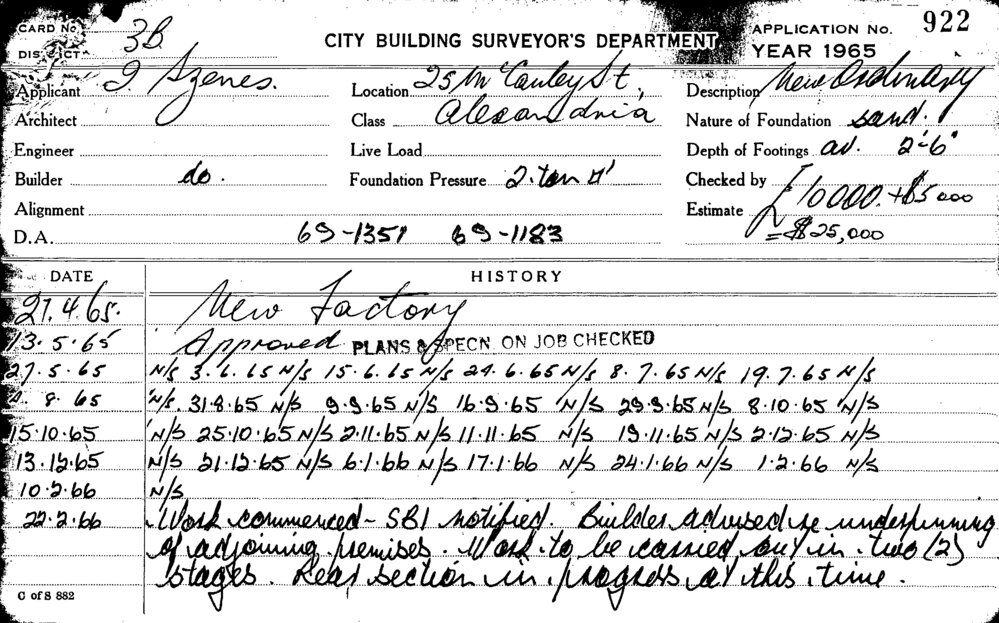 CARD No. 3B. CITY BUILDING SURVEYOR'S DEPARTMENT APPLICATION No. 922
DISTRICT YEAR 1965
Applicant I Szenes. Location 25 McCauley St, Description New Ordinary
Architect Class Alexandria Nature of Foundation sand.
Engineer Live Load Depth of Footings av. 2'-6"
Builder do. Foundation Pressure 2. ton □' Checked by
Alignment Estimate £10000. + £5000
D.A. 69-1351 69-1183 = $25,000
DATE HISTORY
27.4.65. New Factory
13.5.65 Approved PLANS & SPECN. ON JOB CHECKED
27.5.65 N/S 3.6.65 N/S 15.6.65 N/S 24.6.65 N/S 8.7.65 N/S 19.7.65 N/S
8.65 N/S. 31.8.65 N/S 9.9.65 N/S 16.9.65 N/S 29.9.65 N/S 8.10.65 N/S
15.10.65 N/S 25.10.65 N/S 2.11.65 N/S 11.11.65 N/S 19.11.65 N/S 2.12.65 N/S
13.12.65 N/S 21.12.65 N/S 6.1.66 N/S 17.1.66 N/S 24.1.66 N/S 1.2.66 N/S
10.2.66 N/S
22.2.66 Work commenced - SBI notified. Builder advised re underpinning
of adjoining premises. Work to be carried out in two (2)
stages. Rear section in progress at this time.
C of S 882